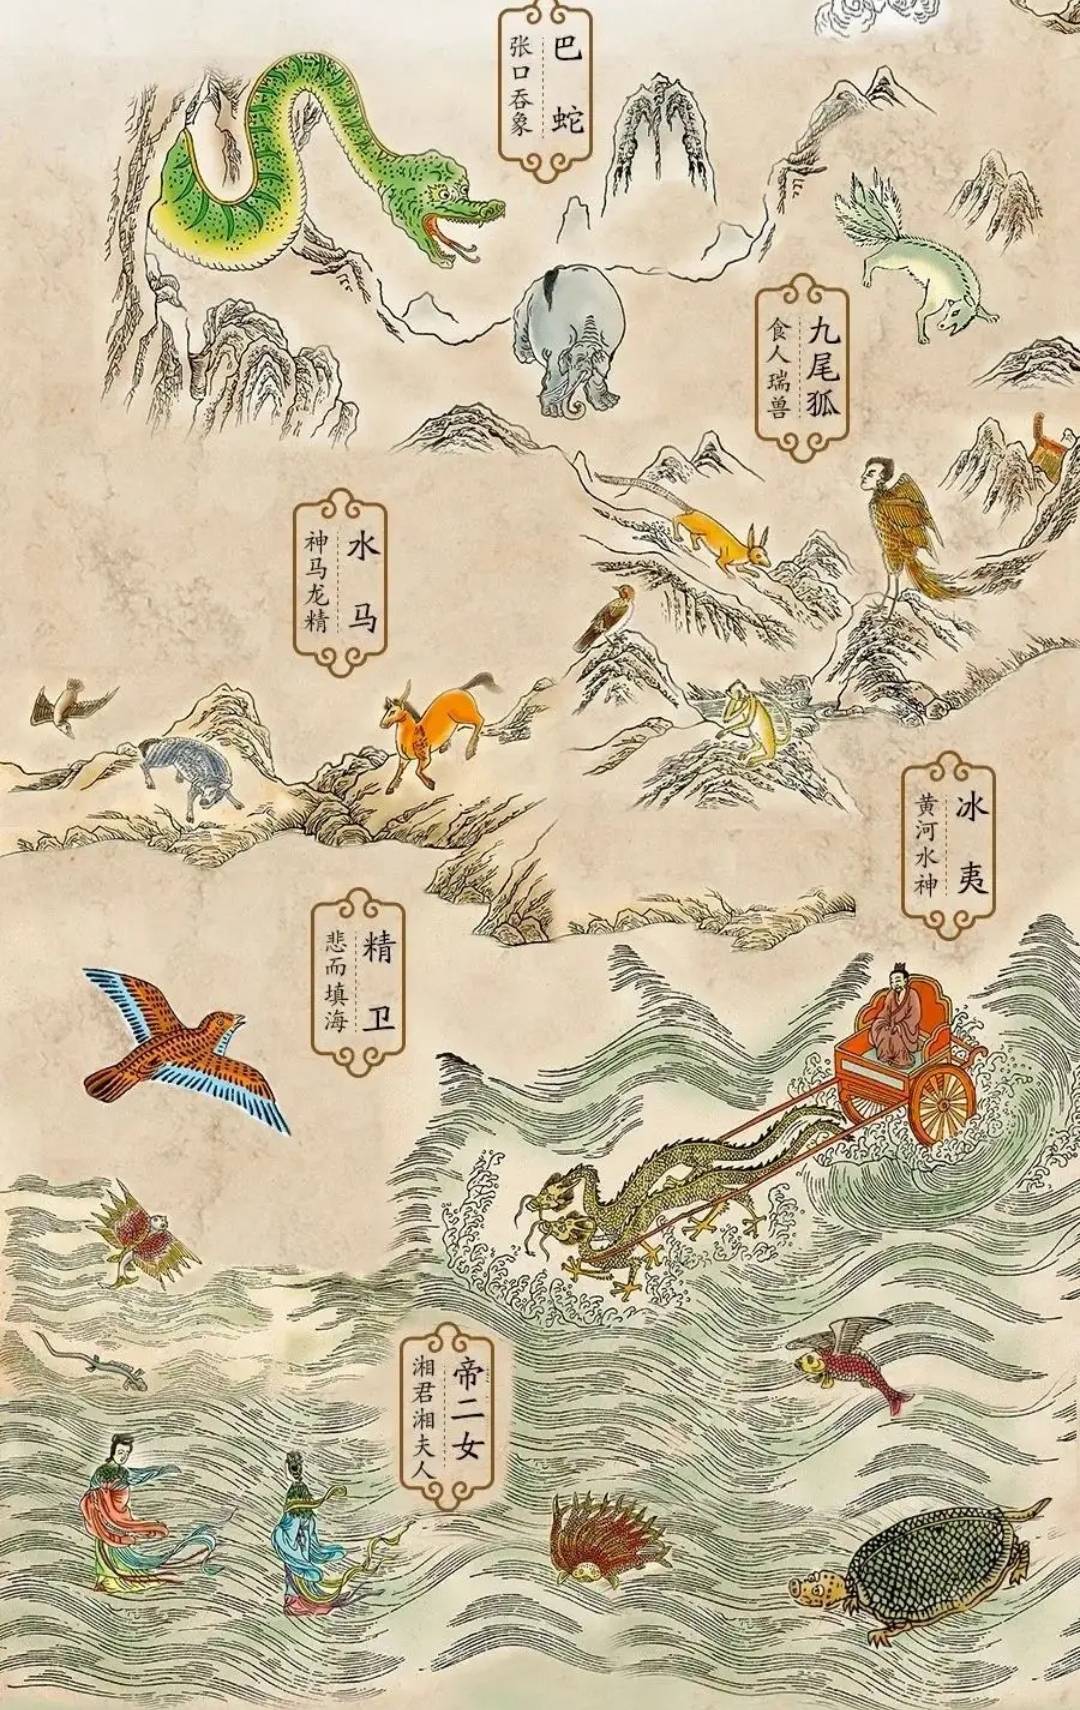 巴蛇
张口吞象
九尾狐
食人瑞兽
水马
神马龙精
冰夷
黄河水神
精卫
悲而填海
帝二女
湘君湘夫人